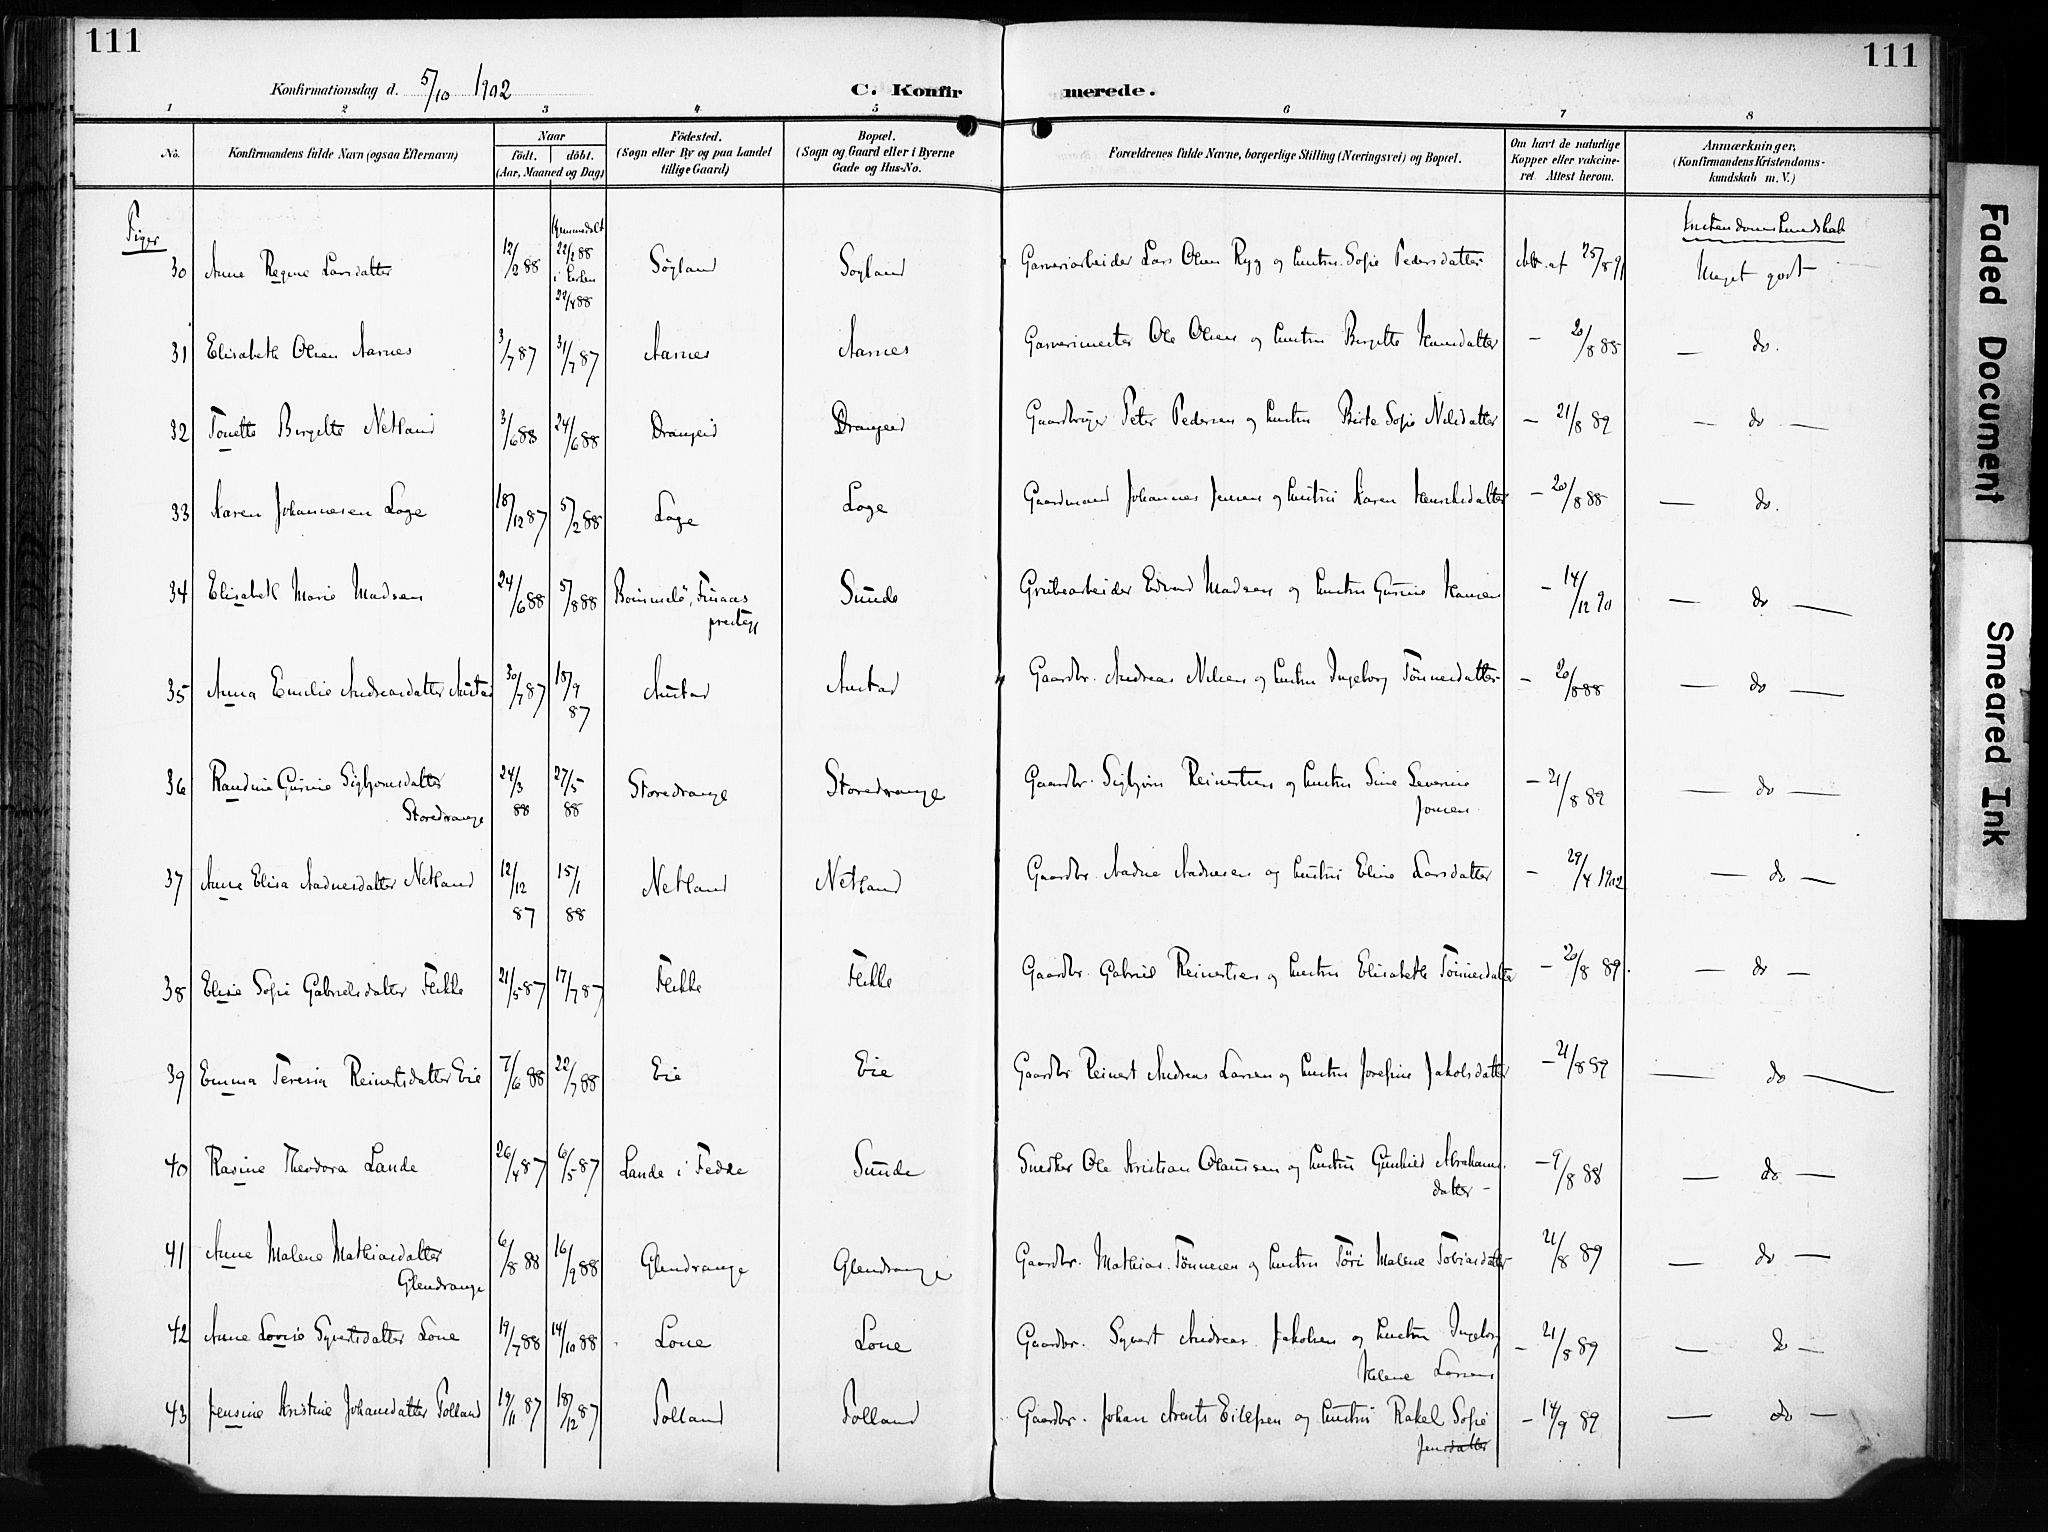 111
111
Konfirmationsdag d. 5/10 1902
C. Konfir merede.
1 2 3 4 5 6 7 8
No. Konfirmandens fulde Navn (ogsaa Efternavn) Naar födt. döbt. (Aar, Maaned og Dag) Födested. (Sogn eller By og paa Landet tillige Gaard) Bopæl. (Sogn og Gaard eller i Byerne Gade og Hus-No. Forældrenes fulde Navne, borgerlige Stilling (Næringsvei) og Bopæl. Om havt de naturlige Kopper eller vakcineret. Attest herom. Anmærkninger, (Konfirmandens Kristendomskundskab m. V.)
Piger Kristendomskundskab
30 Anne Regine Larsdatter 12/2 88 Hjemmedøbt 22/2 88 i Kirken 22/4 88 Søyland Søyland Garveriarbeider Lars Olsen Ryg og hustru Sofie Pedersdatter Att. af 25/8 91 Meget godt
31 Elisabeth Olsen Aarnes 3/7 87 31/7 87 Aarnes Aarnes Garverimester Ole Olsen og hustru Birgitte Hansdatter – 20/8 88 — do.
32 Tonette Birgitte Netland 3/6 88 24/6 88 Drangeid Drangeid Gaardbruger Peter Pedersen og hustru Birte Sofie Nilsdatter – 21/8 89 — do —
33 Karen Johannesen Loge 18/12 87 5/2 88 Loge Loge Gaardmand Johannes Jensen og hustru Karen Henriksdatter – 20/8 88 — do.
34 Elisabeth Marie Madsen 24/6 88 5/8 88 Bømmelø, Finaas prestegj Sunde Grubearbeider Edvard Madsen og hustru Gurine Hansen – 14/12 90 — do —
35 Anna Emilie Andreasdatter Austad 30/7 87 18/9 87 Austad Austad Gaardbr. Andreas Nilsen og hustru Ingeborg Tönnesdatter – 20/8 88 — do —
36 Randine Gurine Sigbjornsdatter Storedrange 24/3 88 27/5 88 Storedrange Storedrange Gaardbr. Sigbjörn Reinertsen og hustru Sine Severine Jonsen – 21/8 89 — do —
37 Anne Elisa Aadnesdatter Netland 12/12 87 15/1 88 Netland Netland Gaardbr. Aadne Aadnesen og hustru Eline Larsdatter – 29/4 1902 — do —
38 Elisie Sofie Gabrielsdatter Flikke 21/5 87 17/7 87 Flikke Flikke Gaardbr. Gabriel Reinertsen og hustru Elisabeth Tönnesdatter – 20/8 89. — do —
39 Emma Teresia Reinertsdatter Eie 7/6 88 22/7 88 Eie Eie Gaardbr Reinert Andreas Larsen og hustru Josefine Jakobsdatter – 21/8 89 — do —
40 Rasine Theodora Lande 26/4 87 6/5 87 Lande i Fedde Sunde Snedker Ole Kristian Olaussen og hustru Gunhild Abrahamsdatter – – 9/8 88 — do —
41 Anne Malene Mathiasdatter Glendrange 6/8 88 16/9 88 Glendrange Glendrange Gaardbr. Mathias Tönnesen og hustru Töri Malene Tobiasdatter 21/8 89 — do —
42 Anne Lovise Syvertsdatter Lone 19/7 88 14/10 88 Lone Lone Gaardbr. Syvert Andreas Jakobsen og hustru Ingeborg Helene Larsen – 21/8 89 — do —
43 Jensine Kristine Johansdatter Tolland 19/11 87 18/12 87 Tolland Tolland Gaardbr. Johan Arnts Eilefsen og hustru Rakel Sofie Jensdatter – 14/9 89 — do —
Faded Document
Smeared Ink